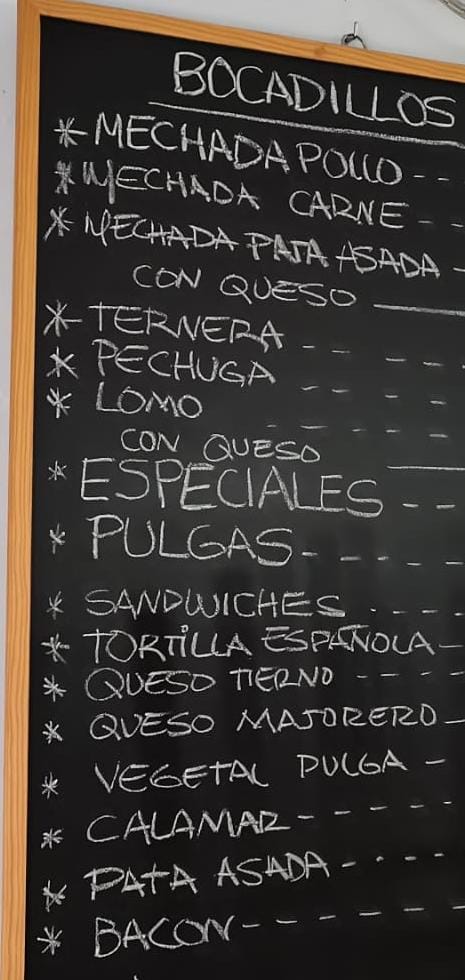 BOCADILLOS
* MECHADA POLLO --
* MECHADA CARNE --
* MECHADA PATA ASADA -
CON QUESO ___
* TERNERA -- --
* PECHUGA -- --
* LOMO -----
CON QUESO ___
* ESPECIALES ---
* PULGAS -----
* SANDWICHES ----
* TORTILLA ESPAÑOLA -
* QUESO TIERNO ----
* QUESO MAJORERO -
* VEGETAL PULGA -
* CALAMAR -----
* PATA ASADA ----
* BACON ------